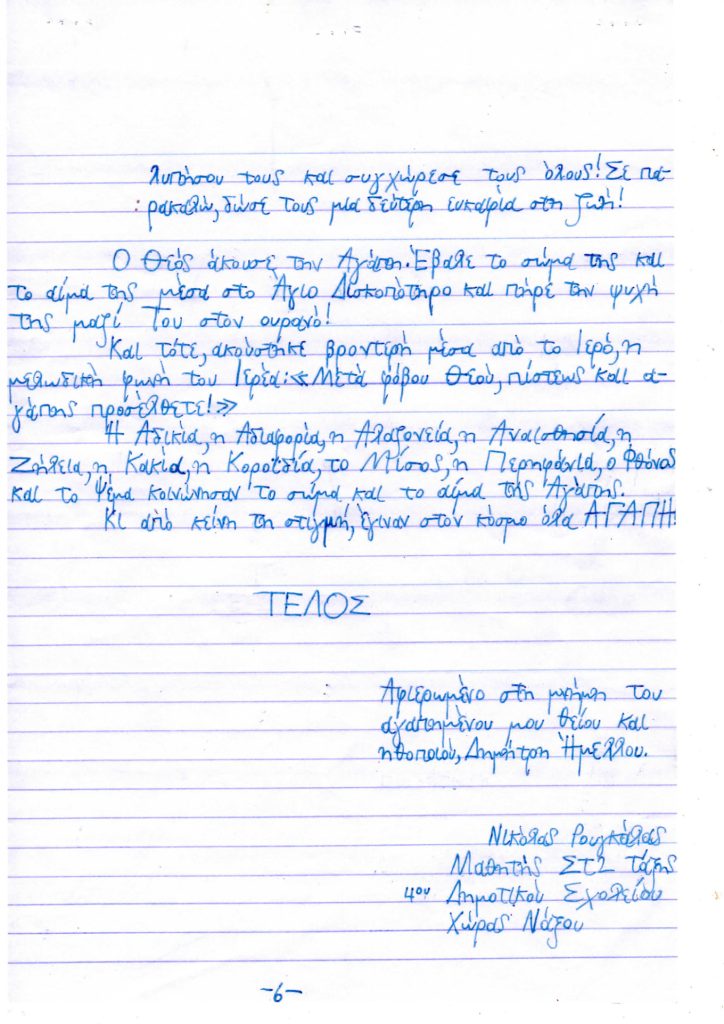 λυπήσου τους και συγχώρεσέ τους όλους! Σε πα-
ρακαλώ, δώσε τους μία δεύτερη ευκαιρία στη ζωή!
Ο Θεός άκουσε την Αγάπη. Έβαλε το σώμα της και
το αίμα της μέσα στο Άγιο Δισκοπότηρο και πήρε την ψυχή
της μαζί Του στον ουρανό!
Και τότε, ακούστηκε βροντερή μέσα από το Ιερό, η
μελωδική φωνή του Ιερέα: «Μετά φόβου Θεού, πίστεως και α-
γάπης προσέλθετε!»
Η Αδικία, η Αδιαφορία, η Αλαζονεία, η Αναισθησία, η
Ζήλεια, η Κακία, η Κοροϊδία, το Μίσος, η Περηφάνια, ο Φθόνος
και το Ψέμα κοινώνησαν το σώμα και το αίμα της Αγάπης.
Κι από κείνη τη στιγμή, έγιναν στον κόσμο όλα ΑΓΑΠΗ!
ΤΕΛΟΣ
Αφιερωμένο στη μνήμη του
αγαπημένου μου θείου και
ηθοποιού, Δημήτρη Ήμελλου.
Νικόλας Ρουγκάλας
Μαθητής ΣΤ2 τάξης
4ου Δημοτικού Σχολείου
Χώρας Νάξου
-6-